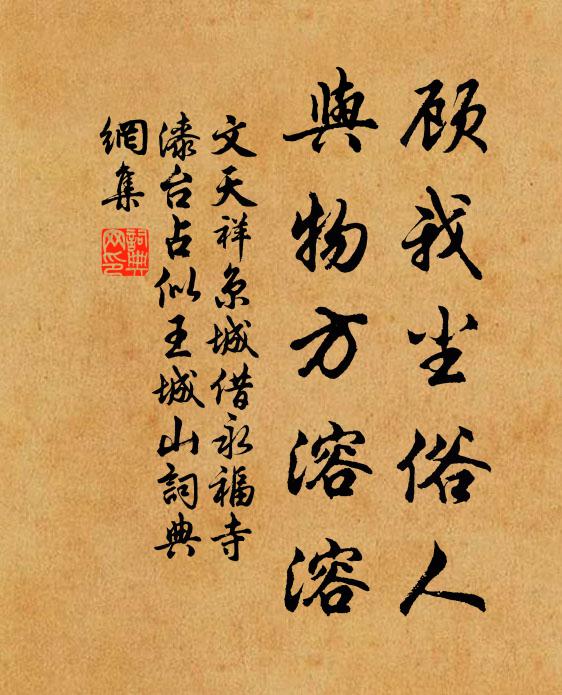 顾我尘俗人
與物方溶溶
文天祥京城借永福寺
漆台占似王城山詞典
網集
詞典網印